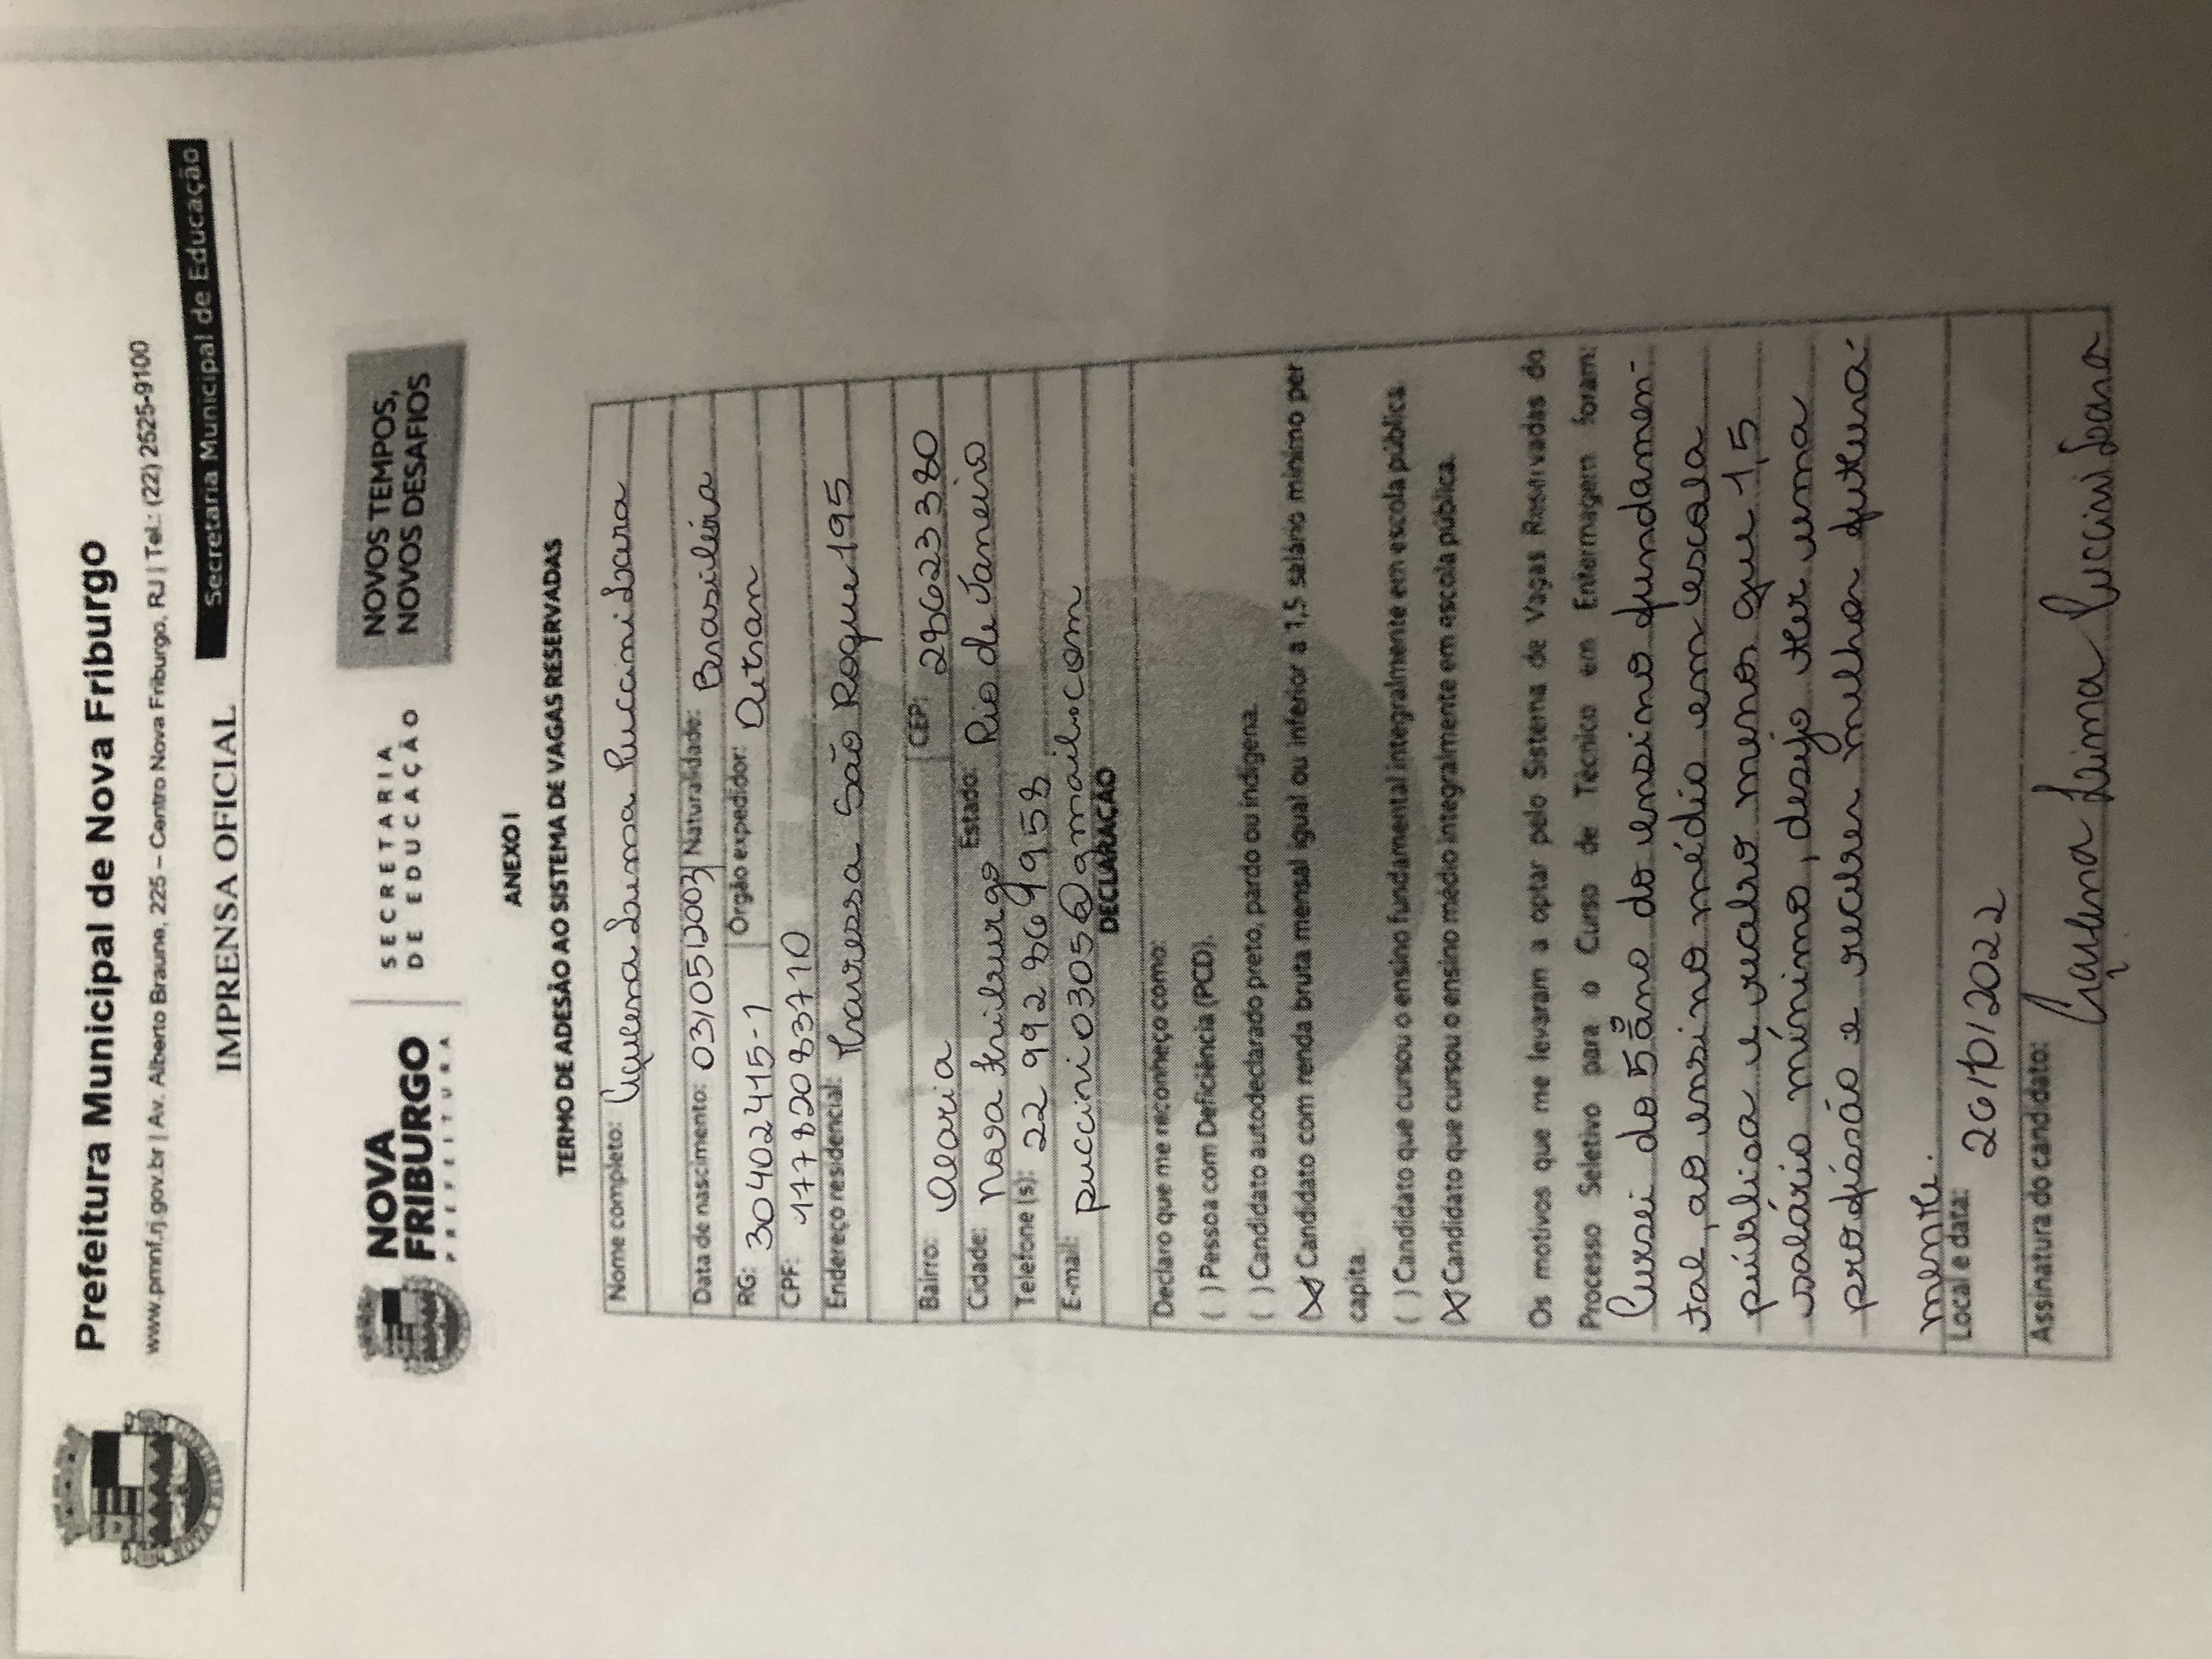 Prefeitura Municipal de Nova Friburgo
www.pmnf.rj.gov.br | Av. Alberto Braune, 225 – Centro Nova Friburgo, RJ | Tel.: (22) 2525-9100
IMPRENSA OFICIAL
Secretaria Municipal de Educação
NOVA FRIBURGO
NOVA
FRIBURGO
PREFEITURA
SECRETARIA
DE EDUCAÇÃO
NOVOS TEMPOS,
NOVOS DESAFIOS
ANEXO I
TERMO DE ADESÃO AO SISTEMA DE VAGAS RESERVADAS
Nome completo: Açucena Lima Puccini Lara
Data de nascimento: 03/05/2003 Naturalidade: Brasileira
RG: 30402415-1 Órgão expedidor: Detran
CPF: 17782083710
Endereço residencial: Travessa São Roque 195
Bairro: Olaria CEP: 28623380
Cidade: Nova Friburgo Estado: Rio de Janeiro
Telefone (s): 22 992861958
E-mail: puccini0305@gmail.com
DECLARAÇÃO
Declaro que me reconheço como:
( ) Pessoa com Deficiência (PCD).
( ) Candidato autodeclarado preto, pardo ou indígena.
(X) Candidato com renda bruta mensal igual ou inferior a 1,5 salário mínimo per
capita.
( ) Candidato que cursou o ensino fundamental integralmente em escola pública.
(X) Candidato que cursou o ensino médio integralmente em escola pública.
Os motivos que me levaram a optar pelo Sistema de Vagas Reservadas do
Processo Seletivo para o Curso de Técnico em Enfermagem foram:
Cursei do 5º ano do ensino fundamen-
tal, ao ensino médio em escola
pública e recebo menos que 1,5
salário mínimo, desejo ter uma
profissão e receber melhor futura-
mente.
Local e data: 26/10/2022
Assinatura do candidato: Açucena Lima Puccini Lara